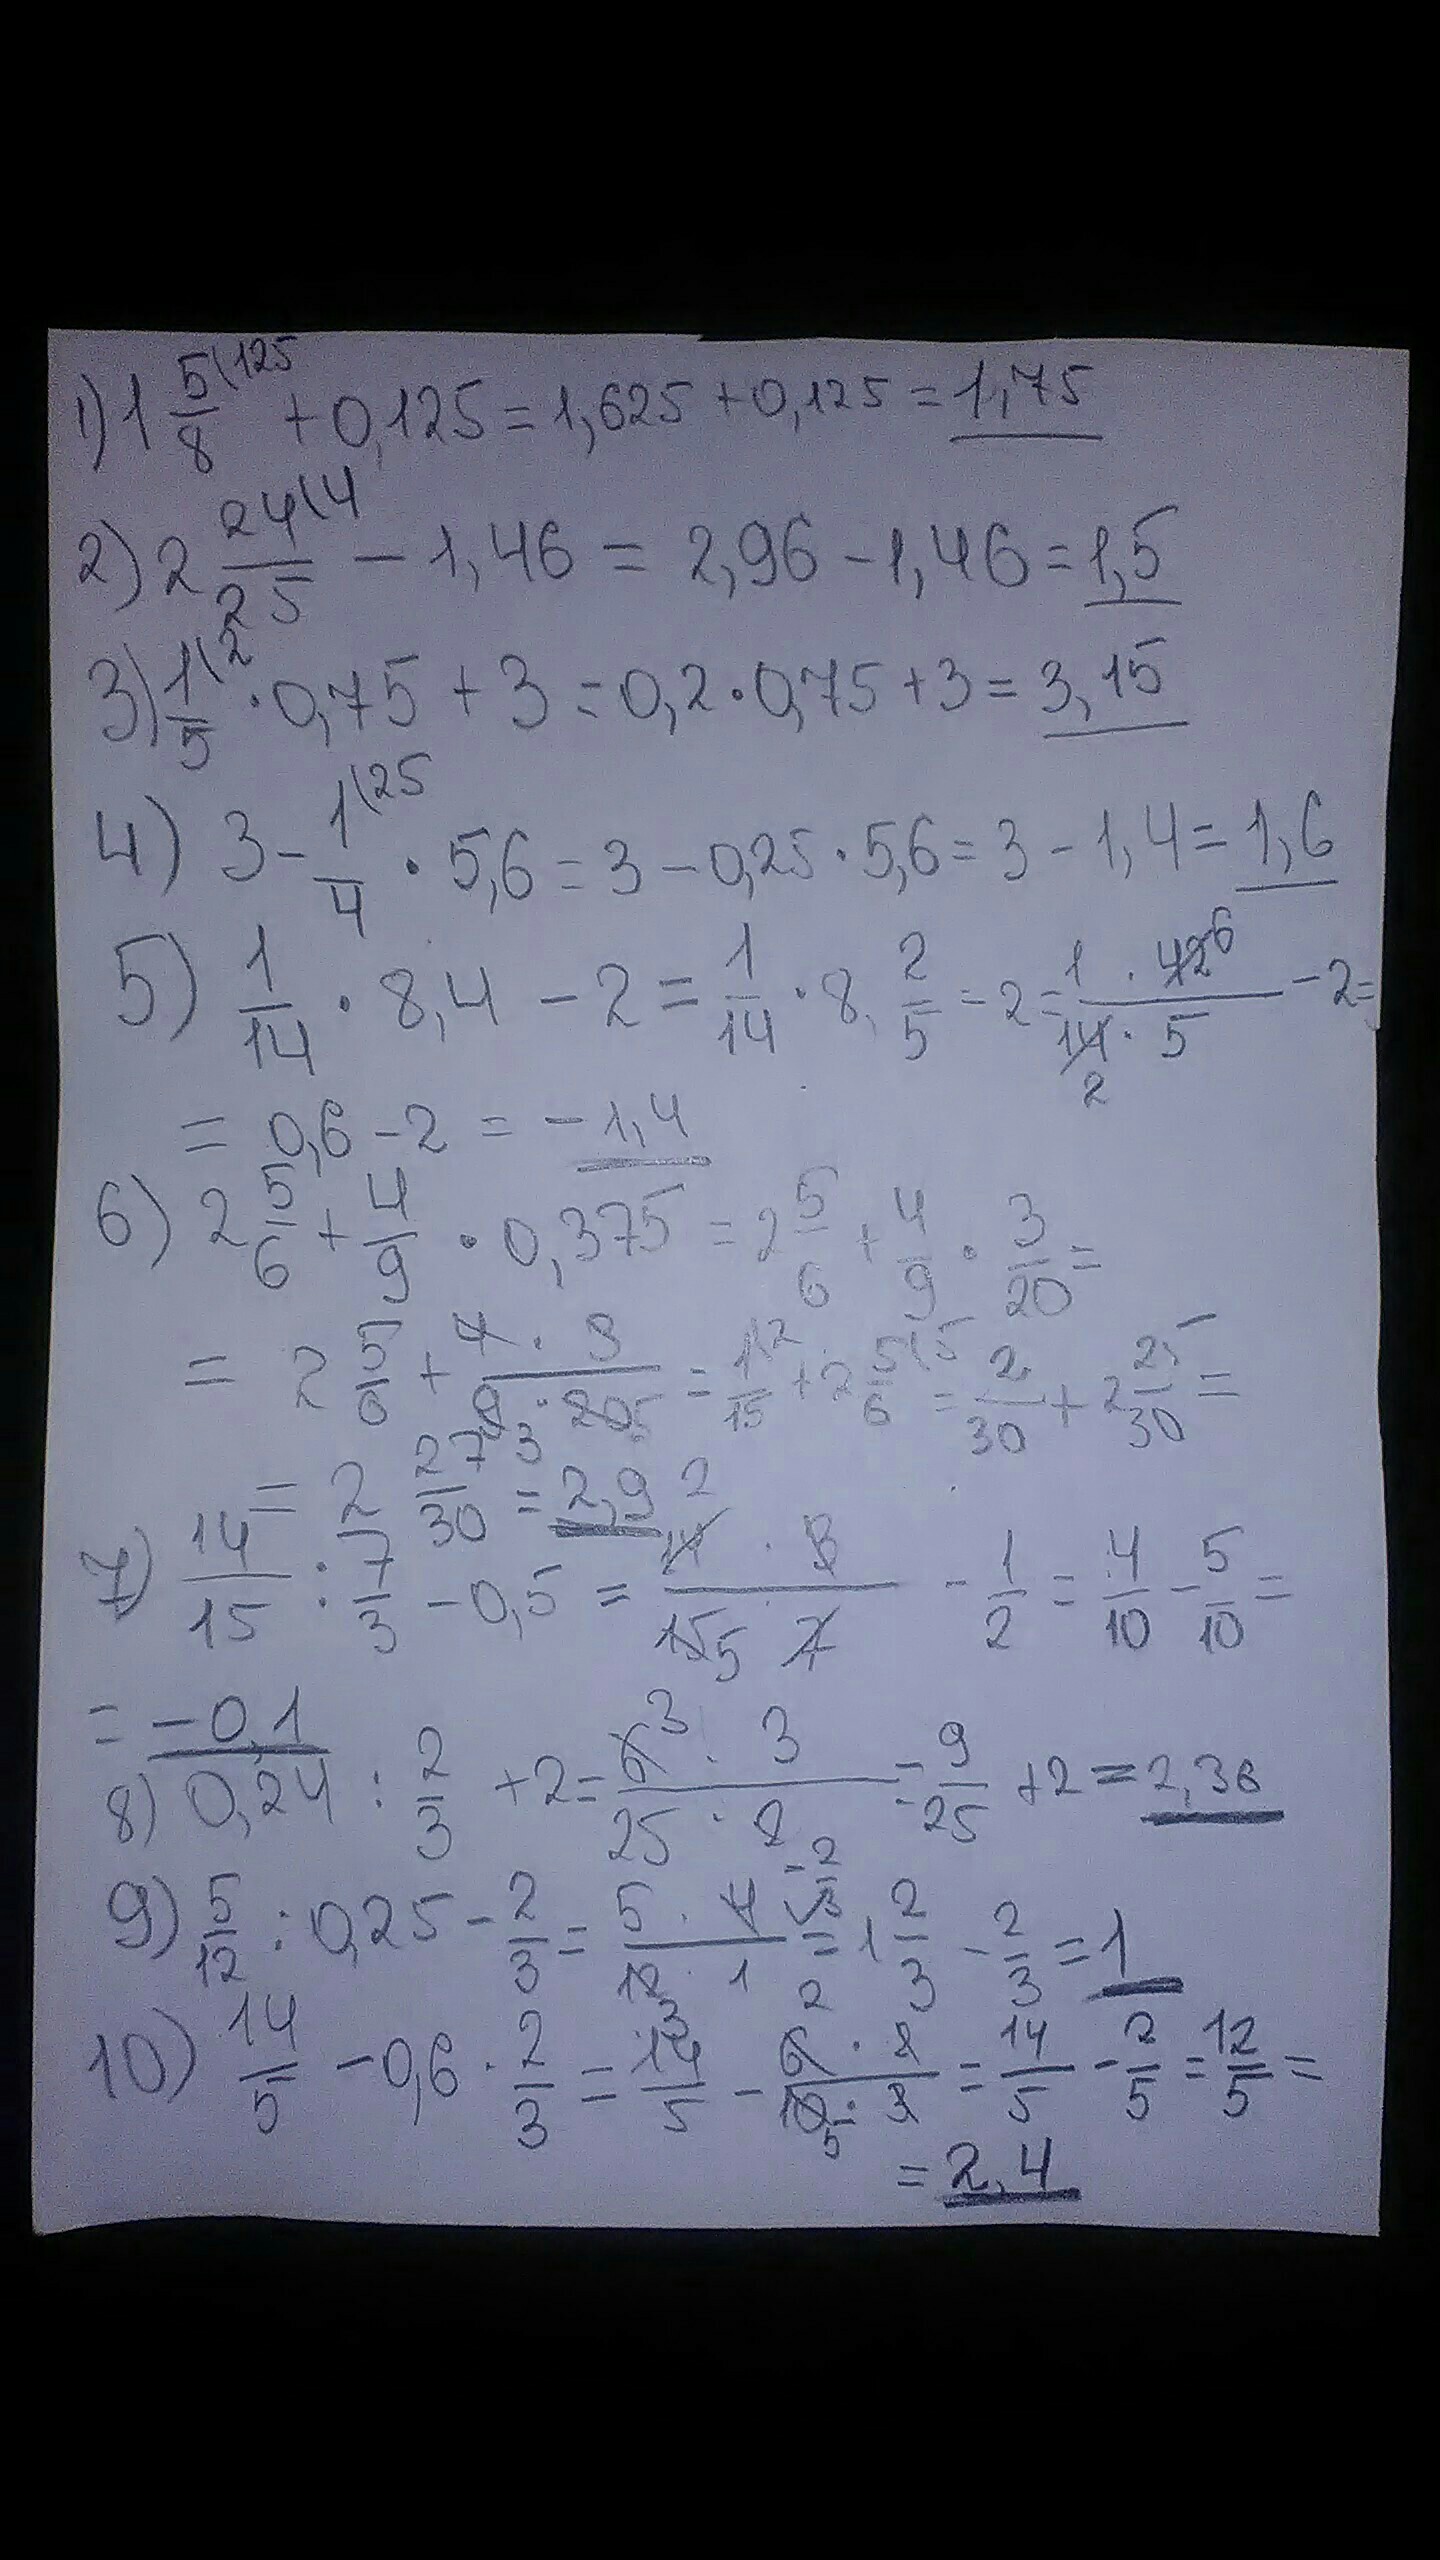 1) 1 5\125/8 + 0,125 = 1,625 + 0,125 = 1,75
2) 2 24\4/25 - 1,46 = 2,96 - 1,46 = 1,5
3) 1\2/5 · 0,75 + 3 = 0,2 · 0,75 + 3 = 3,15
4) 3 - 1\25/4 · 5,6 = 3 - 0,25 · 5,6 = 3 - 1,4 = 1,6
5) 1/14 · 8,4 - 2 = 1/14 · 8 2/5 - 2 = 1 · 42 6/14 · 5 2 - 2 =
= 0,6 - 2 = -1,4
6) 2 5/6 + 4/9 · 0,375 = 2 5/6 + 4/9 · 3/20 =
= 2 5/6 + 4 · 3/9 3 · 20 5 = 1\2/15 + 2 5\5/6 = 2/30 + 2 25/30 =
= 2 27/30 = 2,9
7) 14/15 : 7/3 - 0,5 = 14 2 · 3/15 5 · 7 - 1/2 = 4/10 - 5/10 =
= -0,1
8) 0,24 : 2/3 + 2 = 6 3 · 3/25 · 2 = 9/25 + 2 = 2,36
9) 5/12 : 0,25 - 2/3 = 5 · 4/12 3 · 1 - 2/3 = 1 2/3 - 2/3 = 1
10) 14/5 - 0,6 · 2/3 = 14/5 - 6 2 · 2/10 5 · 3 = 14/5 - 2/5 = 12/5 =
= 2,4